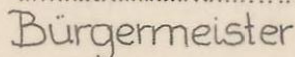 Bürgermeister